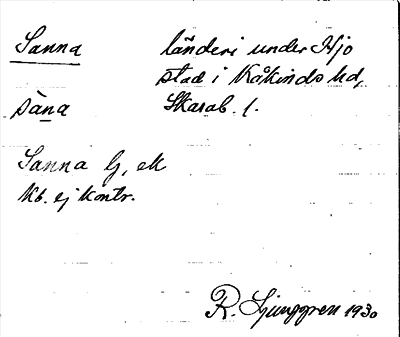 Sanna länderi under Hjo
stad i Kåkinds hd,
sàna Skarab. l.
Sanna lj, ek
Kb. ej kontr.
R. Ljunggren 1930